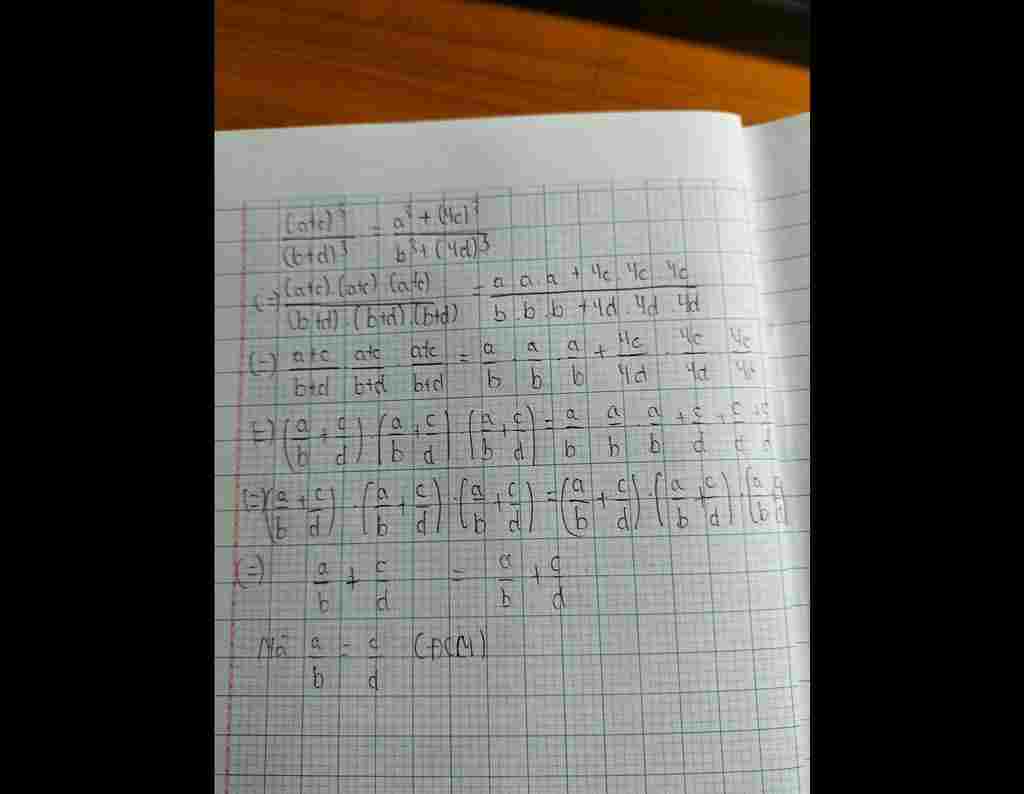 (a+c)³/(b+d)³ = a³ + (4c)³/b³ + (4d)³
(=) (a+c).(a+c).(a+c)/(b+d).(b+d).(b+d) = a.a.a + 4c.4c.4c/b.b.b + 4d.4d.4d
(=) a+c/b+d a+c/b+d a+c/b+d = a/b . a/b . a/b + 4c/4d . 4c/4d
(=) (a/b + c/d) . (a/b + c/d) . (a/b + c/d) = a/b a/b . a/b + c/d + c/d + c/d
(=) (a/b + c/d) . (a/b + c/d) . (a/b + c/d) = (a/b + c/d) . (a/b + c/d) . (a/b + c/d
(=) a/b + c/d = a/b + c/d
Mà a/b = c/d (ĐCM)